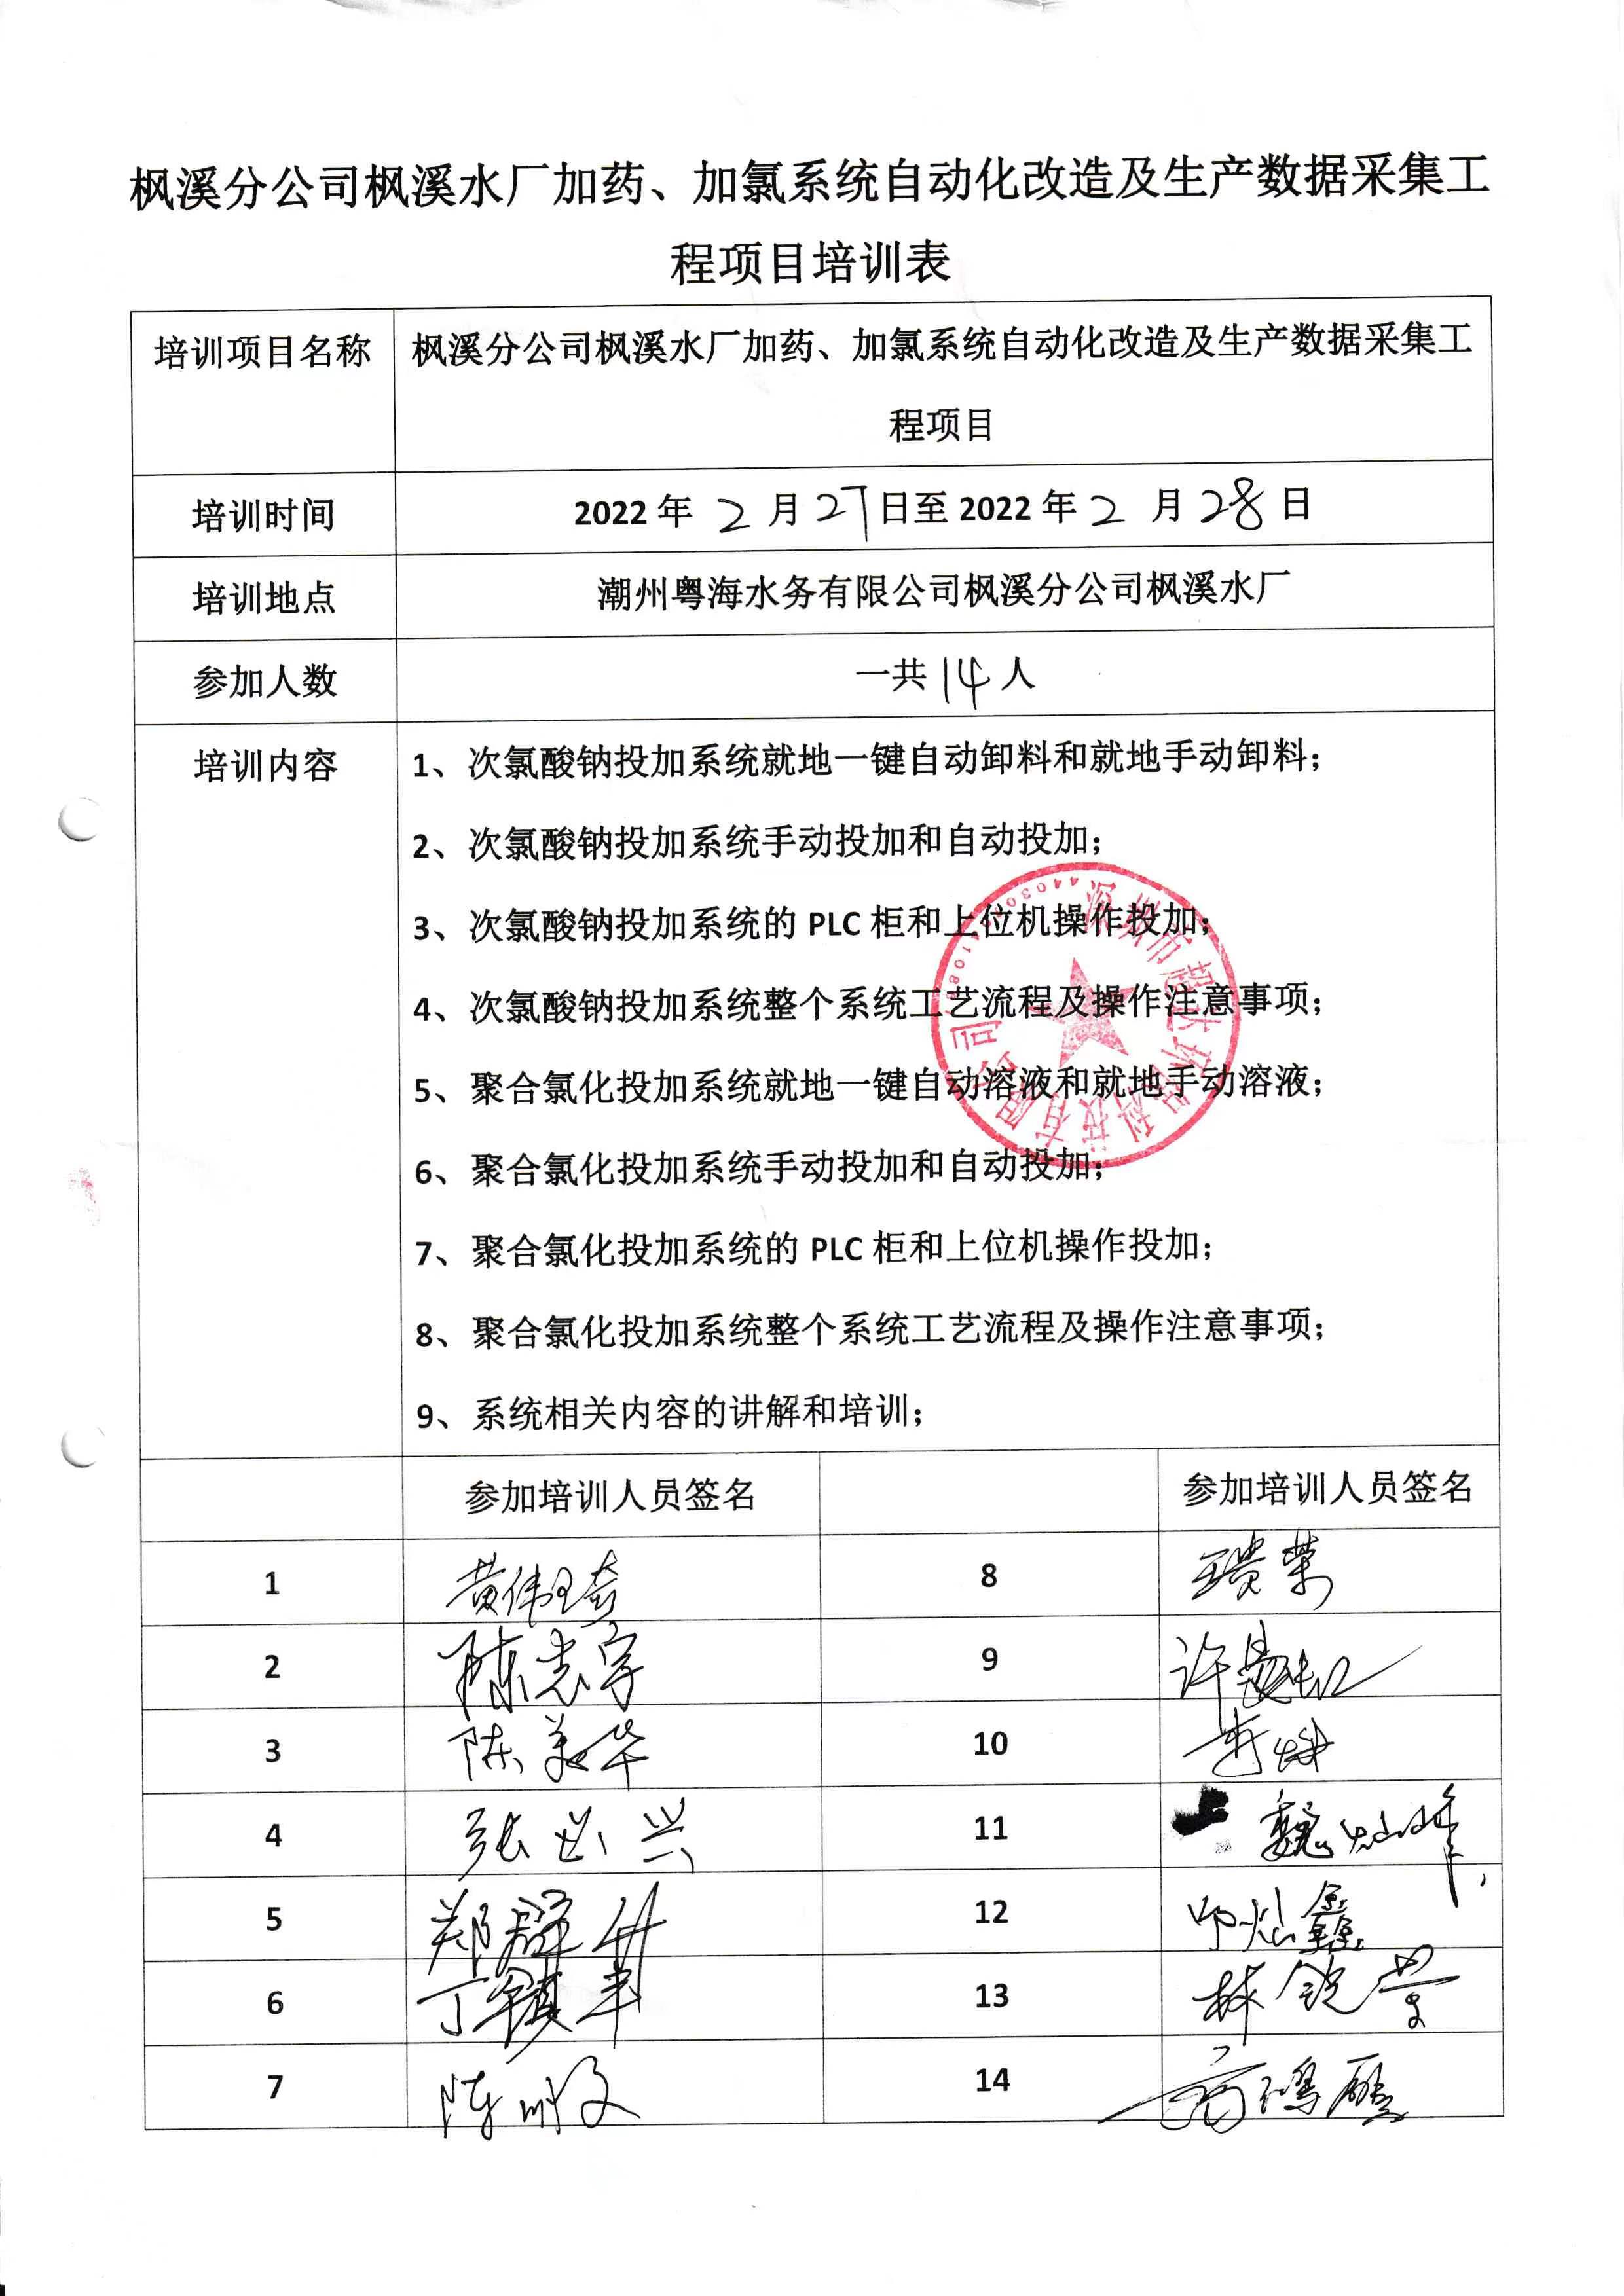 枫溪分公司枫溪水厂加药、加氯系统自动化改造及生产数据采集工
程项目培训表
培训项目名称
枫溪分公司枫溪水厂加药、加氯系统自动化改造及生产数据采集工
程项目
培训时间
2022 年 2 月 27 日至 2022 年 2 月 28 日
培训地点
潮州粤海水务有限公司枫溪分公司枫溪水厂
参加人数
一共 14 人
培训内容
1、次氯酸钠投加系统就地一键自动卸料和就地手动卸料；
2、次氯酸钠投加系统手动投加和自动投加；
3、次氯酸钠投加系统的 PLC 柜和上位机操作投加；
4、次氯酸钠投加系统整个系统工艺流程及操作注意事项；
5、聚合氯化投加系统就地一键自动溶液和就地手动溶液；
6、聚合氯化投加系统手动投加和自动投加；
7、聚合氯化投加系统的 PLC 柜和上位机操作投加；
8、聚合氯化投加系统整个系统工艺流程及操作注意事项；
9、系统相关内容的讲解和培训；
深圳市超达环保科技有限公司
参加培训人员签名 参加培训人员签名
1 黄伟 8 王贵荣
2 陈志宇 9 许
3 陈美华 10 李
4 张兴 11 魏灿峰
5 郑群升 12 灿鑫
6 丁镇丰 13 林锐
7 陈顺文 14 鸿